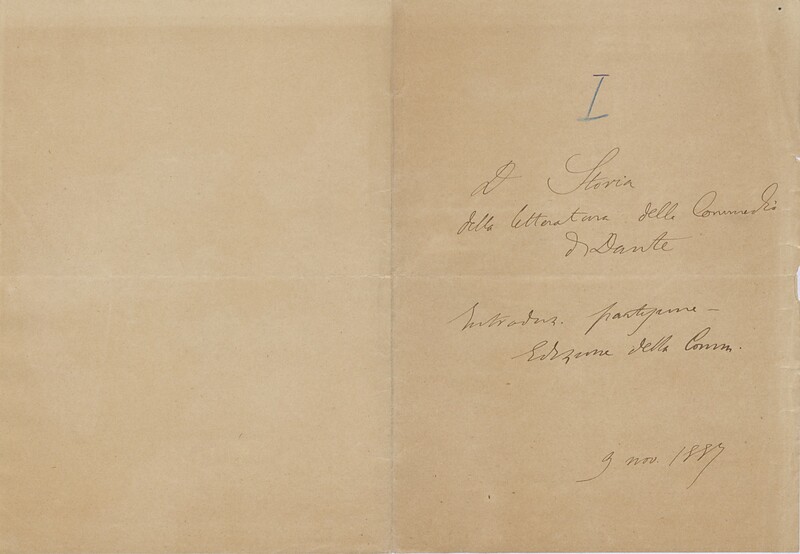 I
D Storia
della letteratura della Commedia
di Dante
Introduz.
Edizione della Comm.
9 nov. 1887